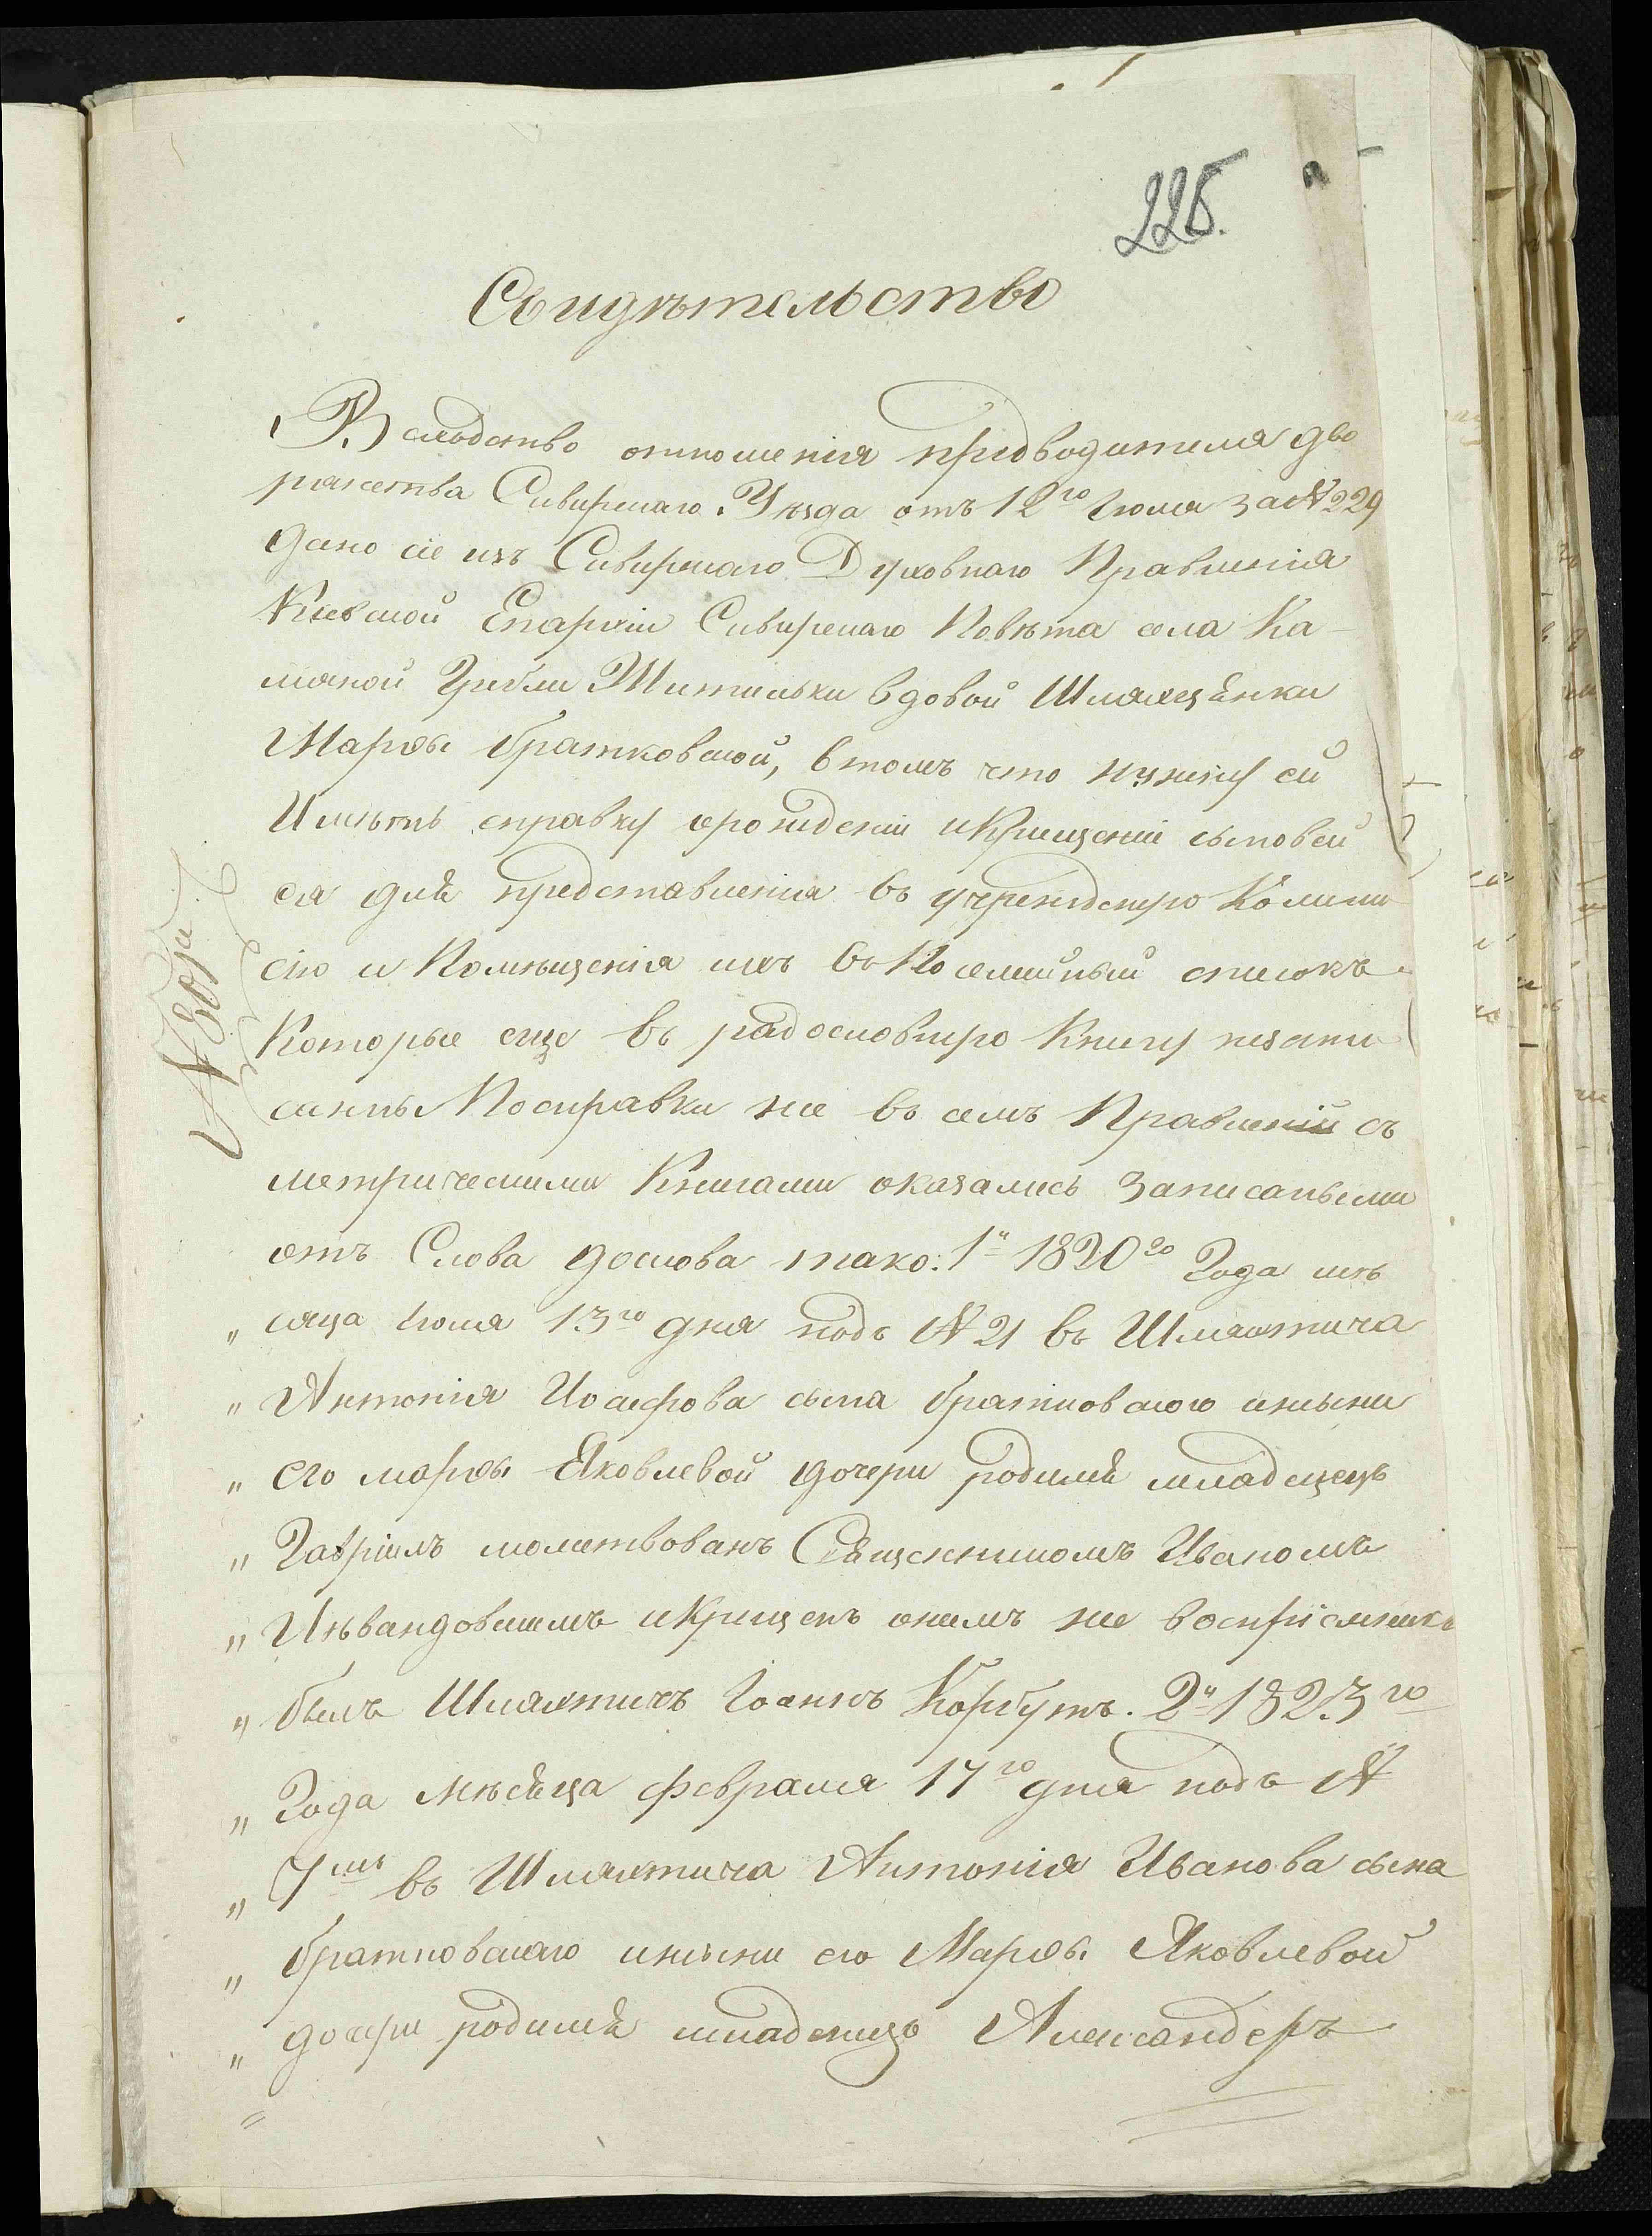 225.
Свидѣтельство
Вследство отношенія предводителя дво
рянства Сквирскаго Уѣзда отъ 12го Іюля за № 229
дано сіе изъ Сквирскаго Духовнаго Правленія
Киевской Епархіи Сквирскаго Повѣта села Ка-
мяной Гребли Жительки вдовой Шляхцянки
Марѳы братковской, втомъ что нужну ей
Имѣть справку орождении икрещении сыновей
ея для представленія въ учрежденую Комми
сію и Помѣщенія ихъ въ Посемейный списокъ
Которые еще въ радословную Книгу незапи
санны Посправки же въ семъ Правленій съ
метрическими Книгами оказались Записаными
отъ Слова дослова тако: 1й 1820го Года мѣ
„ сяца Іюля 13го дня подъ № 21 въ Шляхтича
„ Антонія Иосифова сына братковского ижены
„ его марѳы Яковлевой дочери родился младенецъ
„ Гавріилъ молитвованъ Священникомъ Иваномъ
„ икрещенъ онымъ же воспріемникъ
„ былъ Шляхтичъ Іоаннъ Корбутъ. 2й 1823го
„ Года Мѣсяца февраля 17го дня подъ №
„ 7мъ въ Шляхтича Антонія Иванова сына
„ братковского ижены его Марѳы Яковлевой
„ дочери родился младенецъ Александеръ